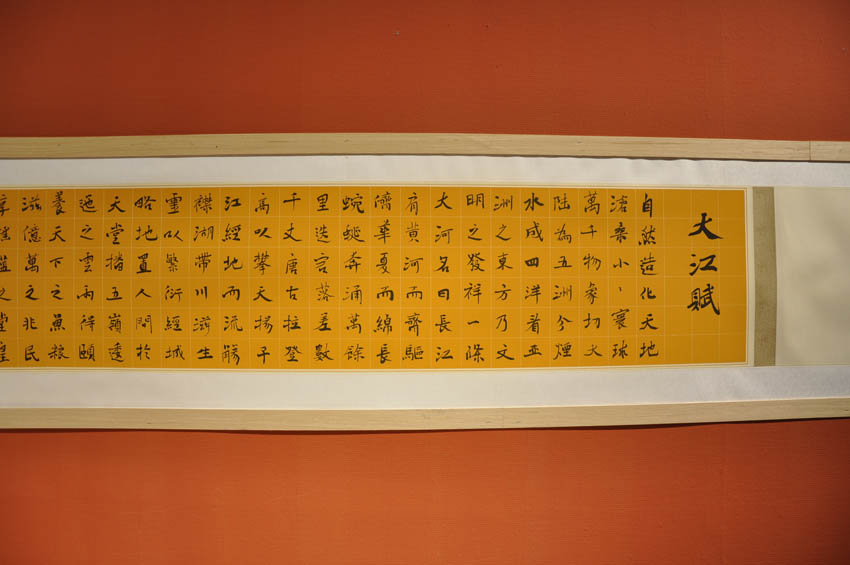 大江賦
自然造化天地
滄桑小小寰球
萬千物象切大
陆為五洲分煙
水成四洋看亚
洲之東方乃文
明之發祥一條
大河名曰長江
肩黄河而齊驅
儕華夏而綿長
蜿蜒奔涌萬餘
里迭宕落差數
千丈唐古拉登
高以攀天揚子
江經地而流觴
襟湖帶川滋生
靈以繁衍經城
略地置人間於
天堂播五嶺逶
迤之雲雨待頤
養天下之魚粮
滋億萬之兆民